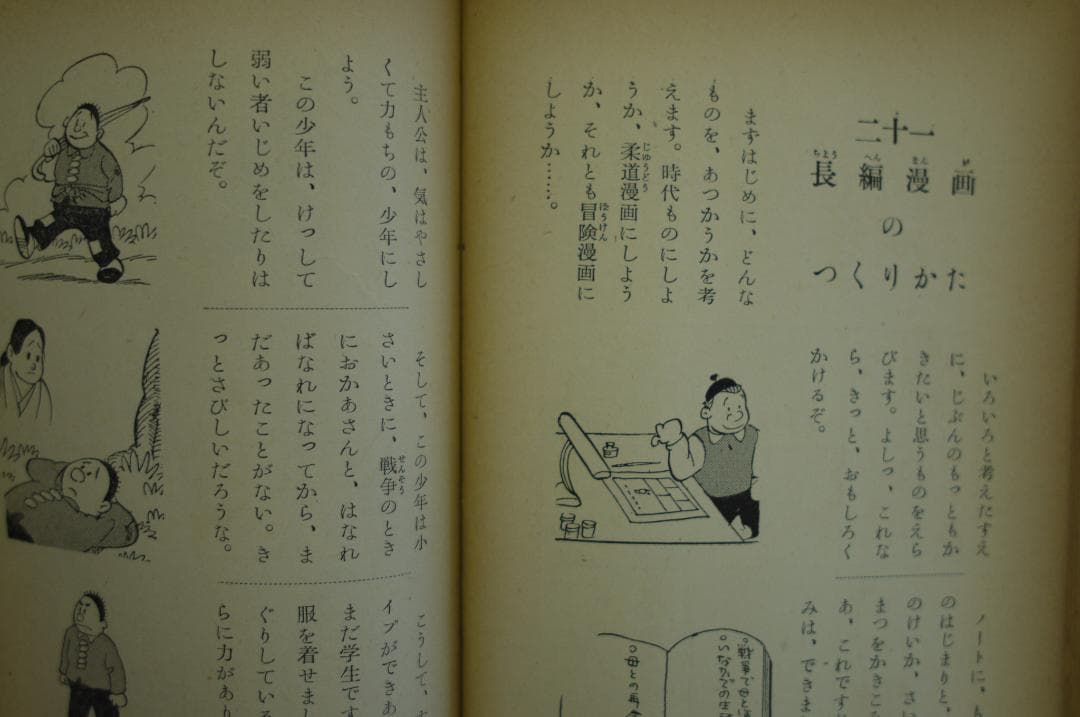 二十一
長編漫画
の
つくりかた
まずはじめに、どんな
ものを、あつかうかを考
えます。時代ものにしよ
うか、柔道漫画にしよう
か、それとも冒険漫画に
しようか……。
いろいろと考えたすえ
に、じぶんのもっともか
きたいと思うものをえら
びます。よしっ、これな
ら、きっと、おもしろく
かけるぞ。
ノートに、
のはじまりと、
のけいか、さい
まつをかきこ
あ、これです
みは、できま
○戦争で母と
○いなかでの生
○母との再会
主人公は、気はやさし
くて力もちの、少年にし
よう。
この少年は、けっして
弱い者いじめをしたりは
しないんだぞ。
そして、この少年は小
さいときに、戦争のとき
におかあさんと、はなれ
ばなれになってから、ま
だあったことがない。き
っとさびしいだろうな。
こうして、
イプができあ
まだ学生です
服を着せまし
ぐりしている
らに力があり